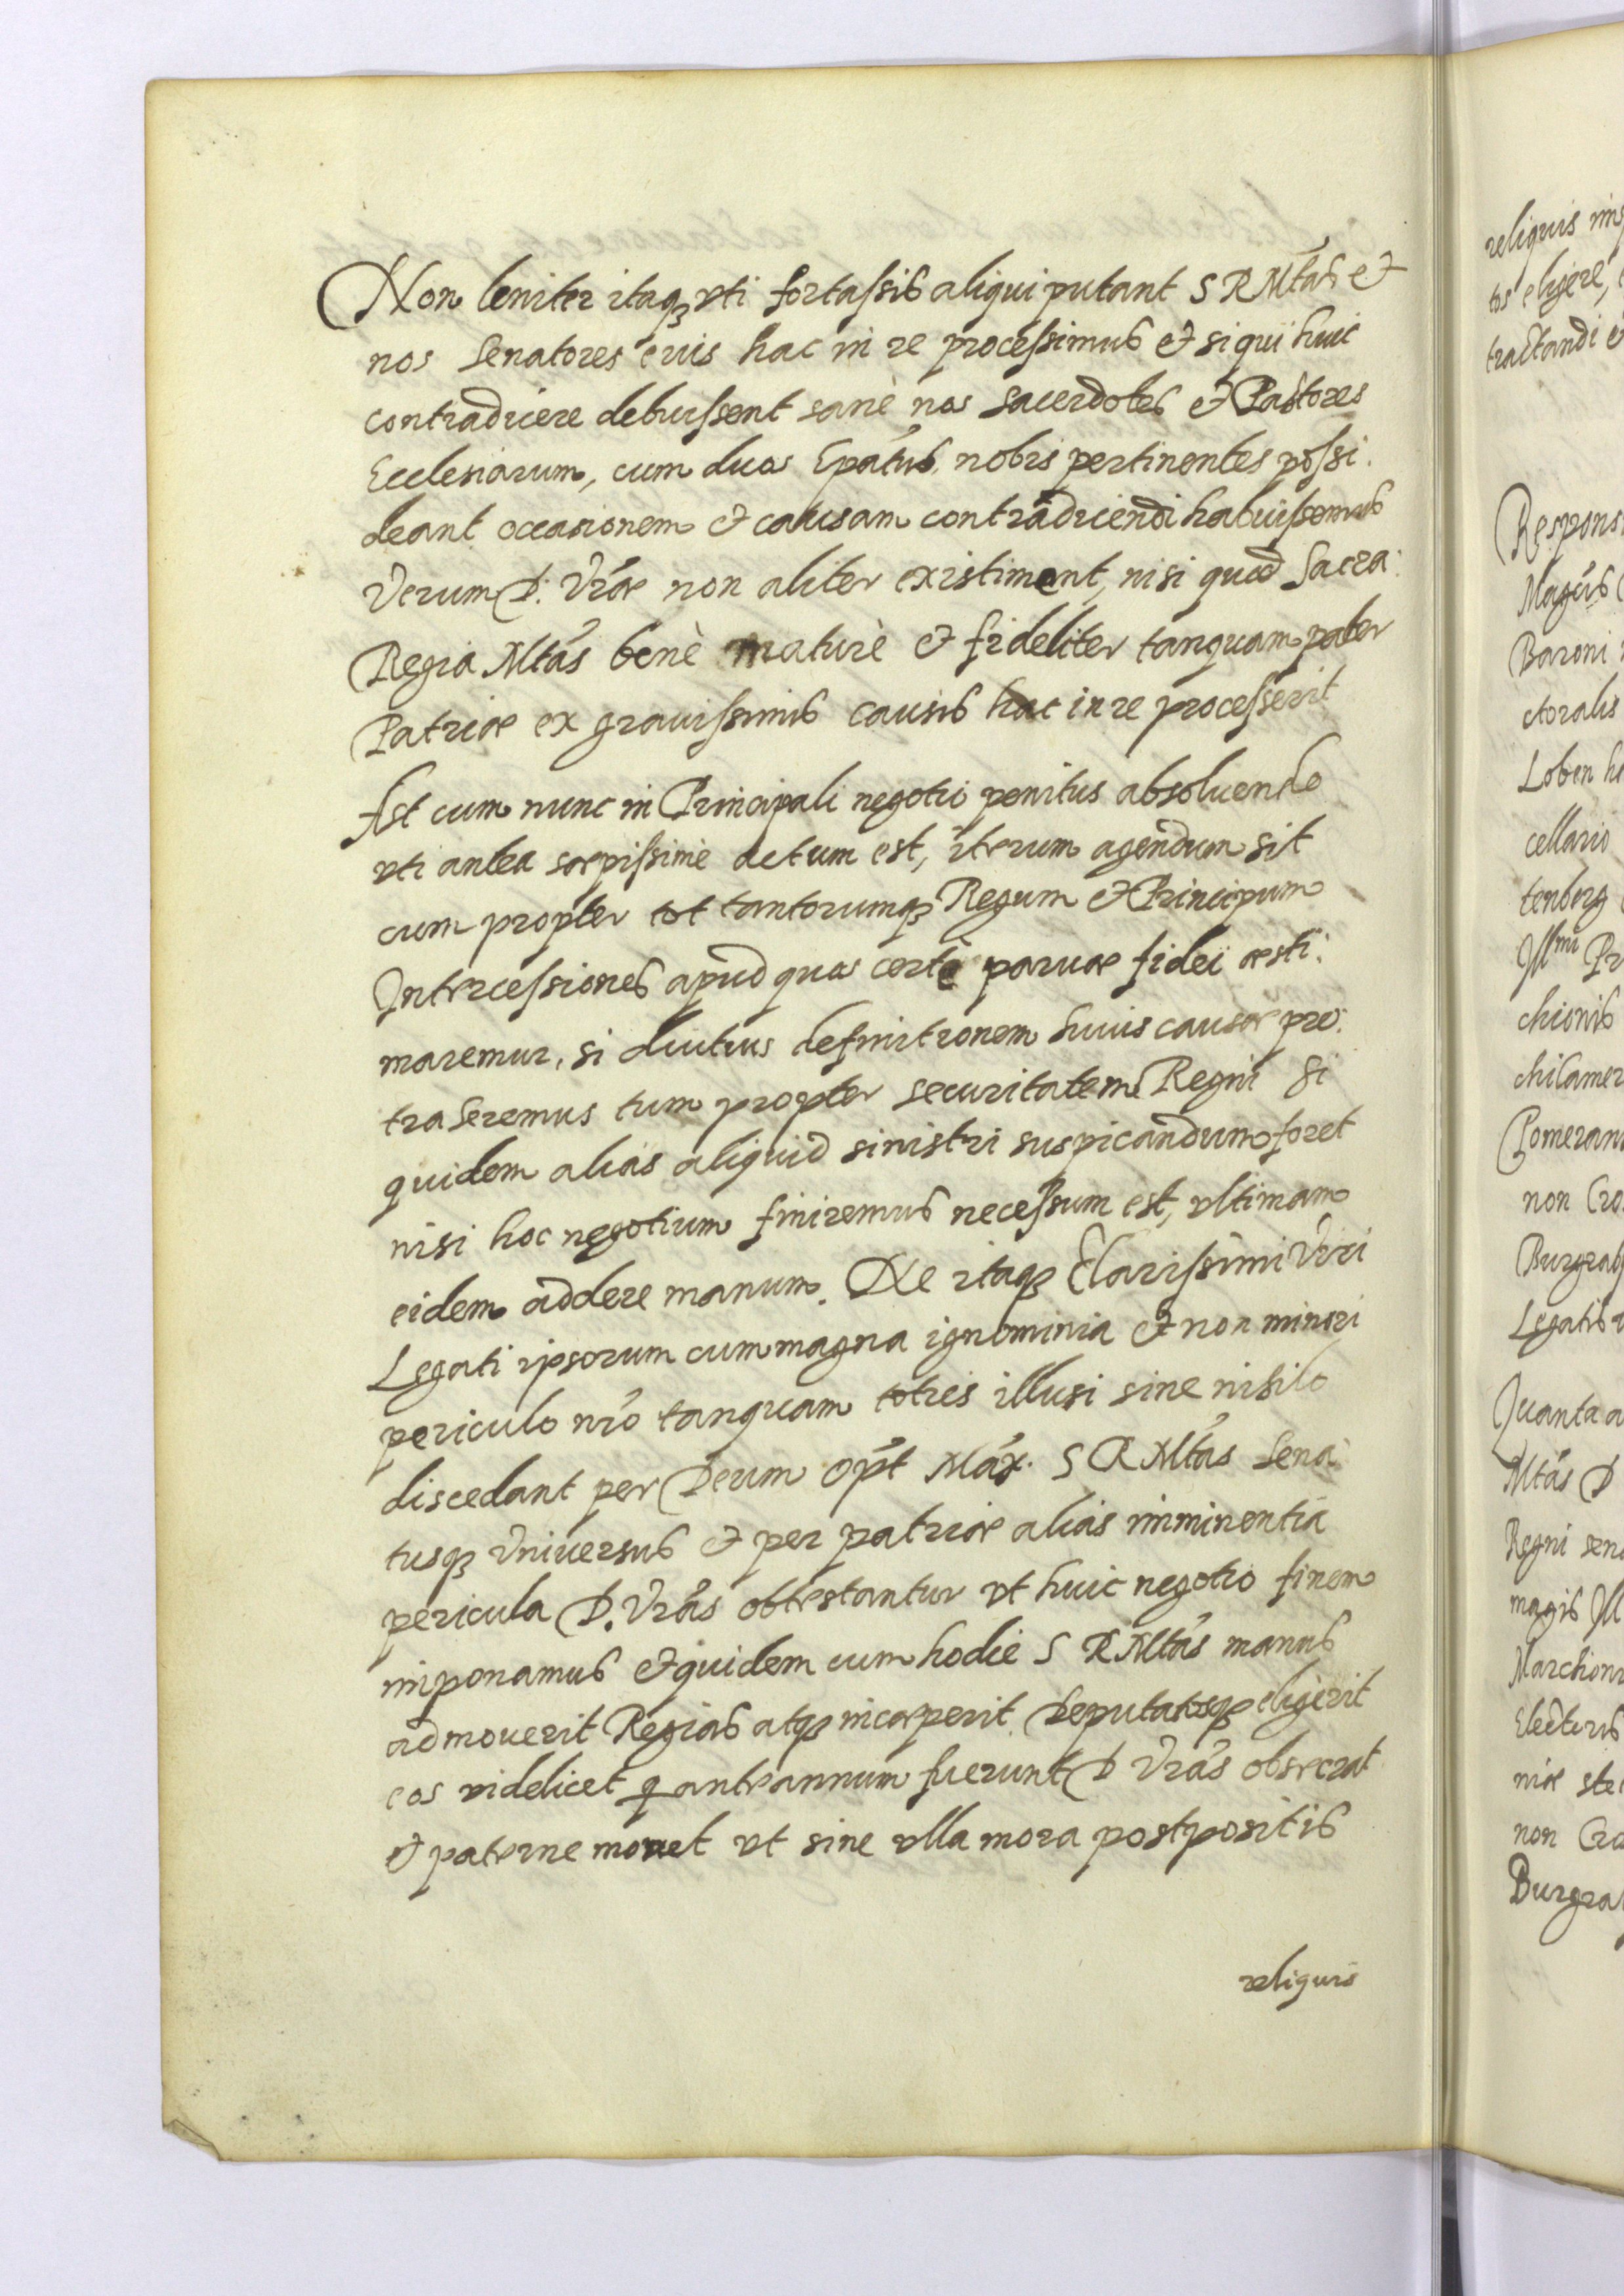 Non leniter itaq; vti fortassis aliqui putant S R Mtas et
nos Senatores eius hac in re processimus et si qui huic
contradicere debuissent sanè nos Sacerdotes et Pastores
Ecclesiarum, cum duos Epatus nobis pertinentes possi:
deant occasionem et causam contradicendi habuissemus
Verum D: Vrae non aliter existiment, nisi quod Sacra:
Regia Mtas benè maturè et fideliter tanquam pater
Patriae ex grauissimis causis hac in re processerit
Ast cum nunc in Principali negotio penitus absoluendo
vti antea saepissimè actum est, iterum agendum sit
cum propter tot tantorumq; Regum et Principum
Intercessiones apud quos certè paruae fidei aesti:
maremur, si diutius definitionem huius causae pro:
traheremus tum propter securitatem Regni Si
quidem alias aliquid sinistri suspicandum foret
nisi hoc negotium finiremus necessum est, vltimam
eidem addere manum. Ne itaq; Clarissimi Viri
Legati ipsorum cum magna ignominia et non minori
periculo nro tanquam toties illusi sine nihilo
discedant per Deum Opt Max. S R Mtas Sena:
tusq; Vniuersus et per patriae alias imminentia
pericula D. Vras obtestantur vt huic negotio finem
imponamus et quidem cum hodie S R Mtas manus
admouerit Regias atq; incaeperit Deputatosq; eligerit
eos videlicet q ante annum fuerunt D Vras obsecrat
et paterne monet vt sine vlla mora postpositis
reliquis
reliquis
tos eligere,
tractandi
Baroni
ctoralis
Loben
cellario
tenberg
Illmi Pr
chionis
non
Legatis
Quanta
Mtas D
Regni
magis
non